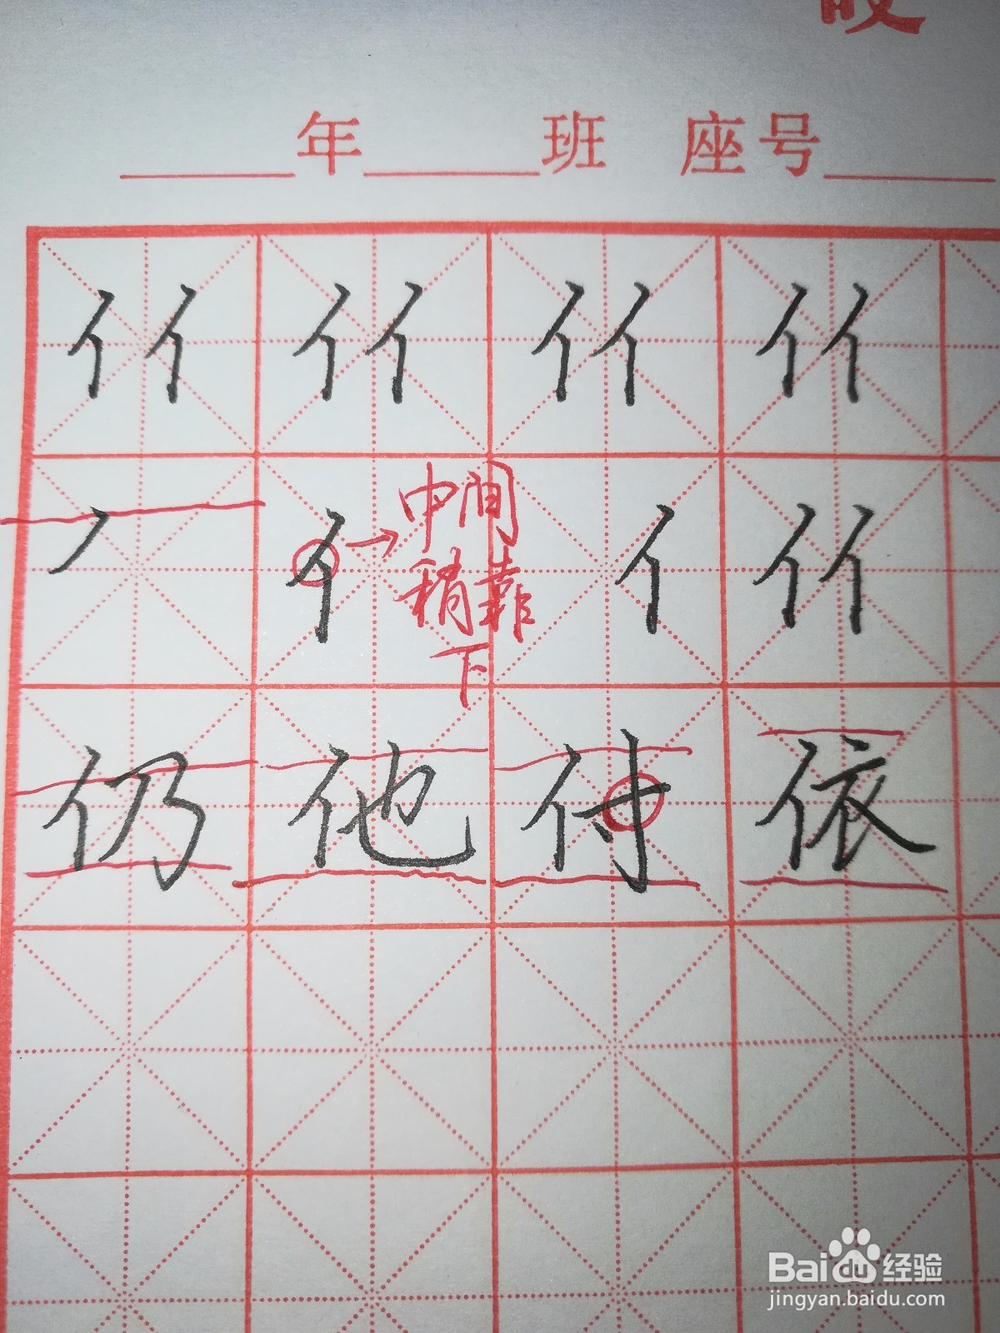 年 班 座号
亻亻 亻亻 亻亻 亻亻
丿 亻 亻 亻亻
中间
稍靠
下
仍 他 付 依
Bai du 经验
jingyan.baidu.com